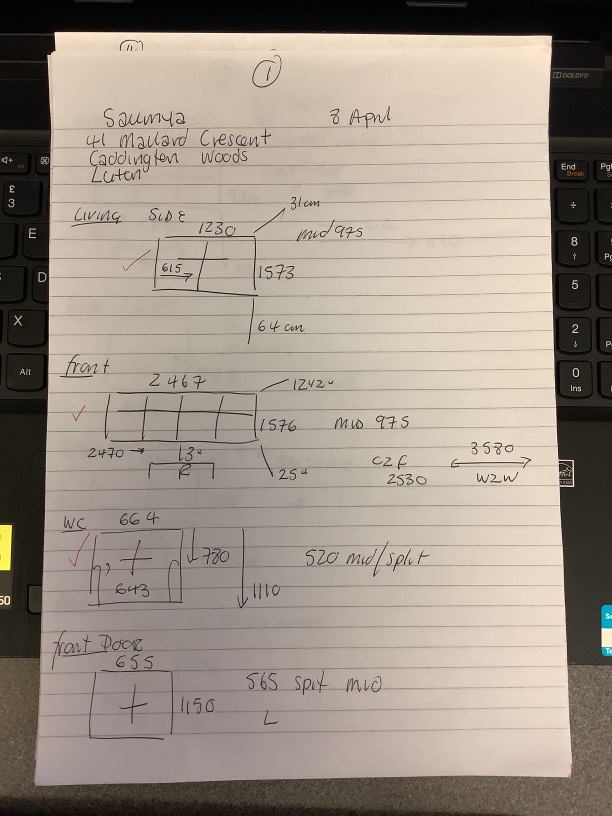 1
Saumya 8 April
41 Mallard Crescent
Caddington Woods
Luton
Living SIDE
1230
31cm
mid 975
615
1573
64 cm
front
2467
1242
1576
mid 975
2470
13"
R
25"
C2F
2530
3580
W2W
WC
664
780
643
1110
520 mid/split
front Door
655
1150
565 split mid
L
DOLBY
End
Break
£
3
E
D
X
Alt
8
5
2
0
Ins
50